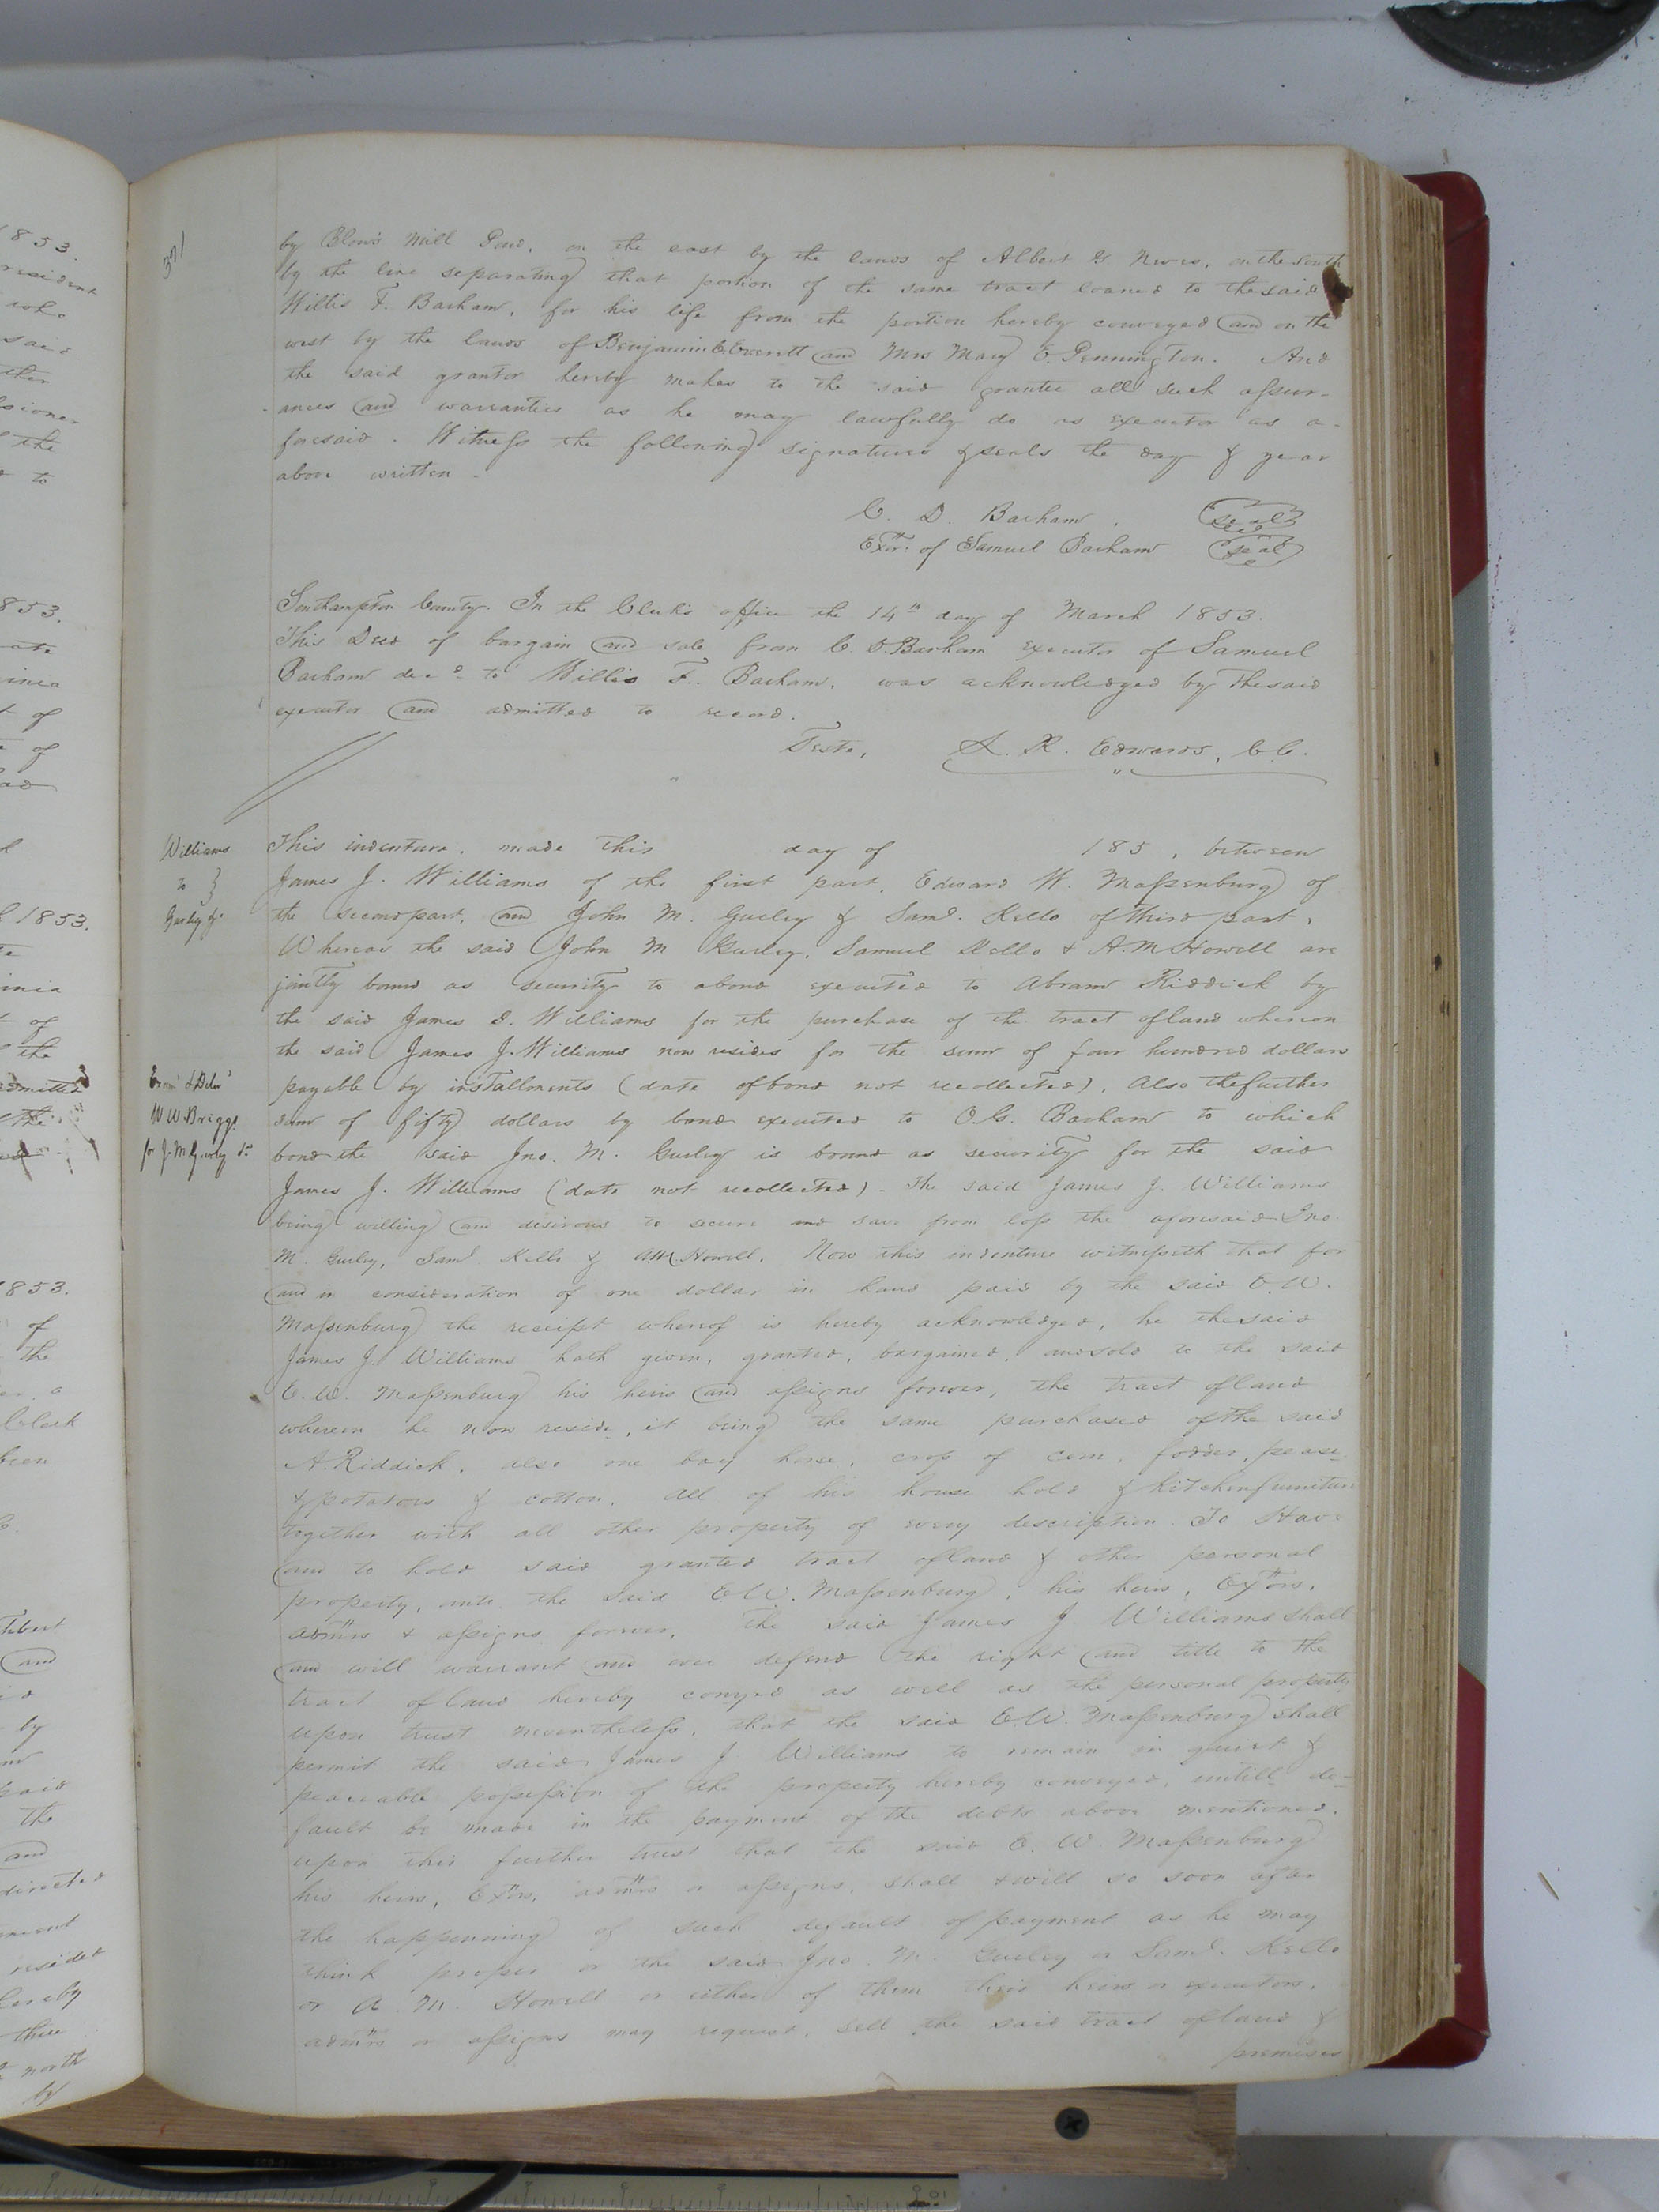 371
by Blow's Mill Pond, on the east by the lands of Albert G Nevis, on the south
by the line separating that portion of the same tract loaned to the said
Willis F. Barham, for his life from the portion hereby conveyed and on the
west by the lands of Benjamin C Everett and Mrs Mary E. Pennington. And
the said grantor hereby makes to the said grantee all such assur-
ances and warranties as he may lawfully do as executor as a-
foresaid. Witness the following signatures & seals the day & year
above written.
C. D. Barham. Seal
Exor. of Samuel Barham Seal
Southampton County. In the Clerk's office the 14th day of March 1853.
This Deed of bargain and sale from C. D. Barham executor of Samuel
Barham decd. to Willis F. Barham, was acknowledged by the said
executor and admitted to record.
Teste, L. R. Edwards, C.C.
Williams
to
Gurley &c
This indenture, made this day of 185 , between
James J. Williams of the first part, Edward W. Massenburg of
the second part, and John M. Gurley & Saml. Kello of third part,
Whereas the said John M Gurley, Samuel Kello & A. M Howell are
jointly bound as security to a bond executed to Abram Riddick by
the said James J. Williams for the purchase of the tract of land whereon
the said James J. Williams now resides for the sum of four hundred dollars
Exam'd & Deld
W W Briggs
for J. M Gurley
payable by installments (date of bond not recollected). Also the further
sum of fifty dollars by bond executed to O. G. Barham to which
bond the said Jno. M. Gurley is bound as security for the said
James J. Williams (date not recollected). The said James J. Williams
being willing and desirous to secure and save from loss the aforesaid Jno.
M. Gurley, Saml. Kello & AM Howell. Now this indenture witnesseth that for
and in consideration of one dollar in hand paid by the said E. W.
Massenburg the receipt whereof is hereby acknowledged, he the said
James J. Williams hath given, granted, bargained, and sold to the said
E. W. Massenburg his heirs and assigns forever, the tract of land
wherein he now reside, it being the same purchased of the said
A. Riddick, also one bay horse, crop of corn, fodder, pease
& potatoes & cotton, all of his house hold & kitchen furniture
together with all other property of every description. To Have
and to hold said granted tract of land & other personal
property, unto the said E W. Massenburg, his heirs, Exors,
admrs & assigns forever, The said James J. Williams shall
and will warrant and ever defend the right and title to the
tract of land hereby conyed as well as the personal property
upon trust nevertheless, that the said E. W. Massenburg shall
permit the said James J Williams to remain in quiet &
peaceable possession of the property hereby conveyed, untill de-
fault be made in the payment of the debts above mentioned.
upon this further trust that the said E. W. Massenburg
his heirs, Exors, admrs or assigns, shall & will so soon after
the happening of such default of payment as he may
think proper or the said Jno. M. Gurley or Saml. Kello
or A. M. Howell or either of them their heirs or executors,
admrs or assigns may request, sell the said tract of land &
premises